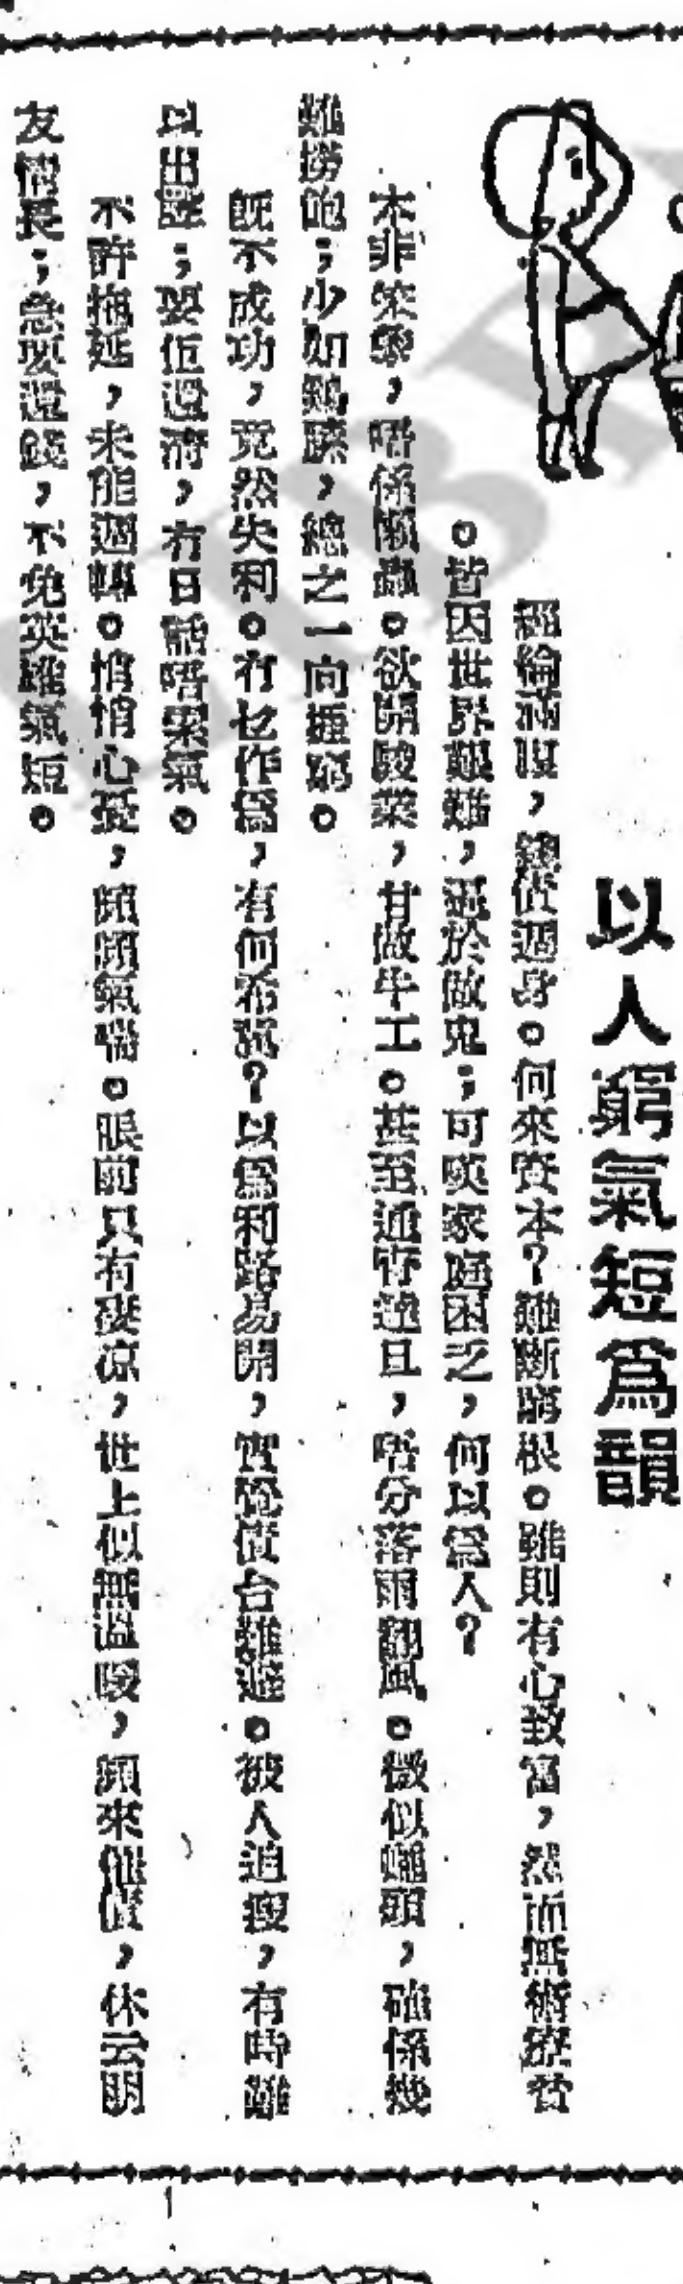 以人窮氣短爲韻
經倫滿腹，債週身。何來資本？難斷窮根。雖則有心致富，然而無術療貧
。皆因世界艱難，過於做鬼；可嘆家庭困乏，何以爲人？
本非笨，唔係懶蟲。欲開駿業，甘做牛工。甚至通宵達旦，唔分落雨翻風。微似蠅頭，確係幾
難撈飽；少如鷄，總之一向捱窮。
既不成功，竟然失利。冇乜作爲，有何希冀？以爲利路易開，實債台難避。被人迫，有時難
以出；要佢還清，冇日話唔累氣。
不許拖延，未能週轉。悄悄心憂，頻頻氣喘。眼前只有凄凉，世上似無溫暖，頻來催債，休云朋
友情長；急要還錢，不免英雄氣短。